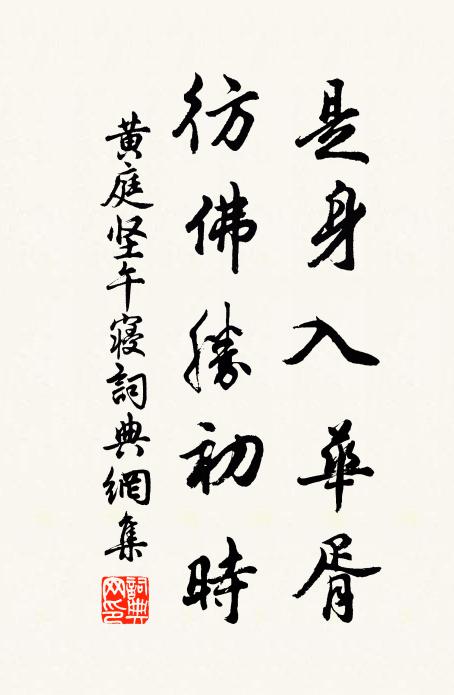 是身入華胥
彷佛勝初時
黄庭坚午寢詞典網集
詞典網印